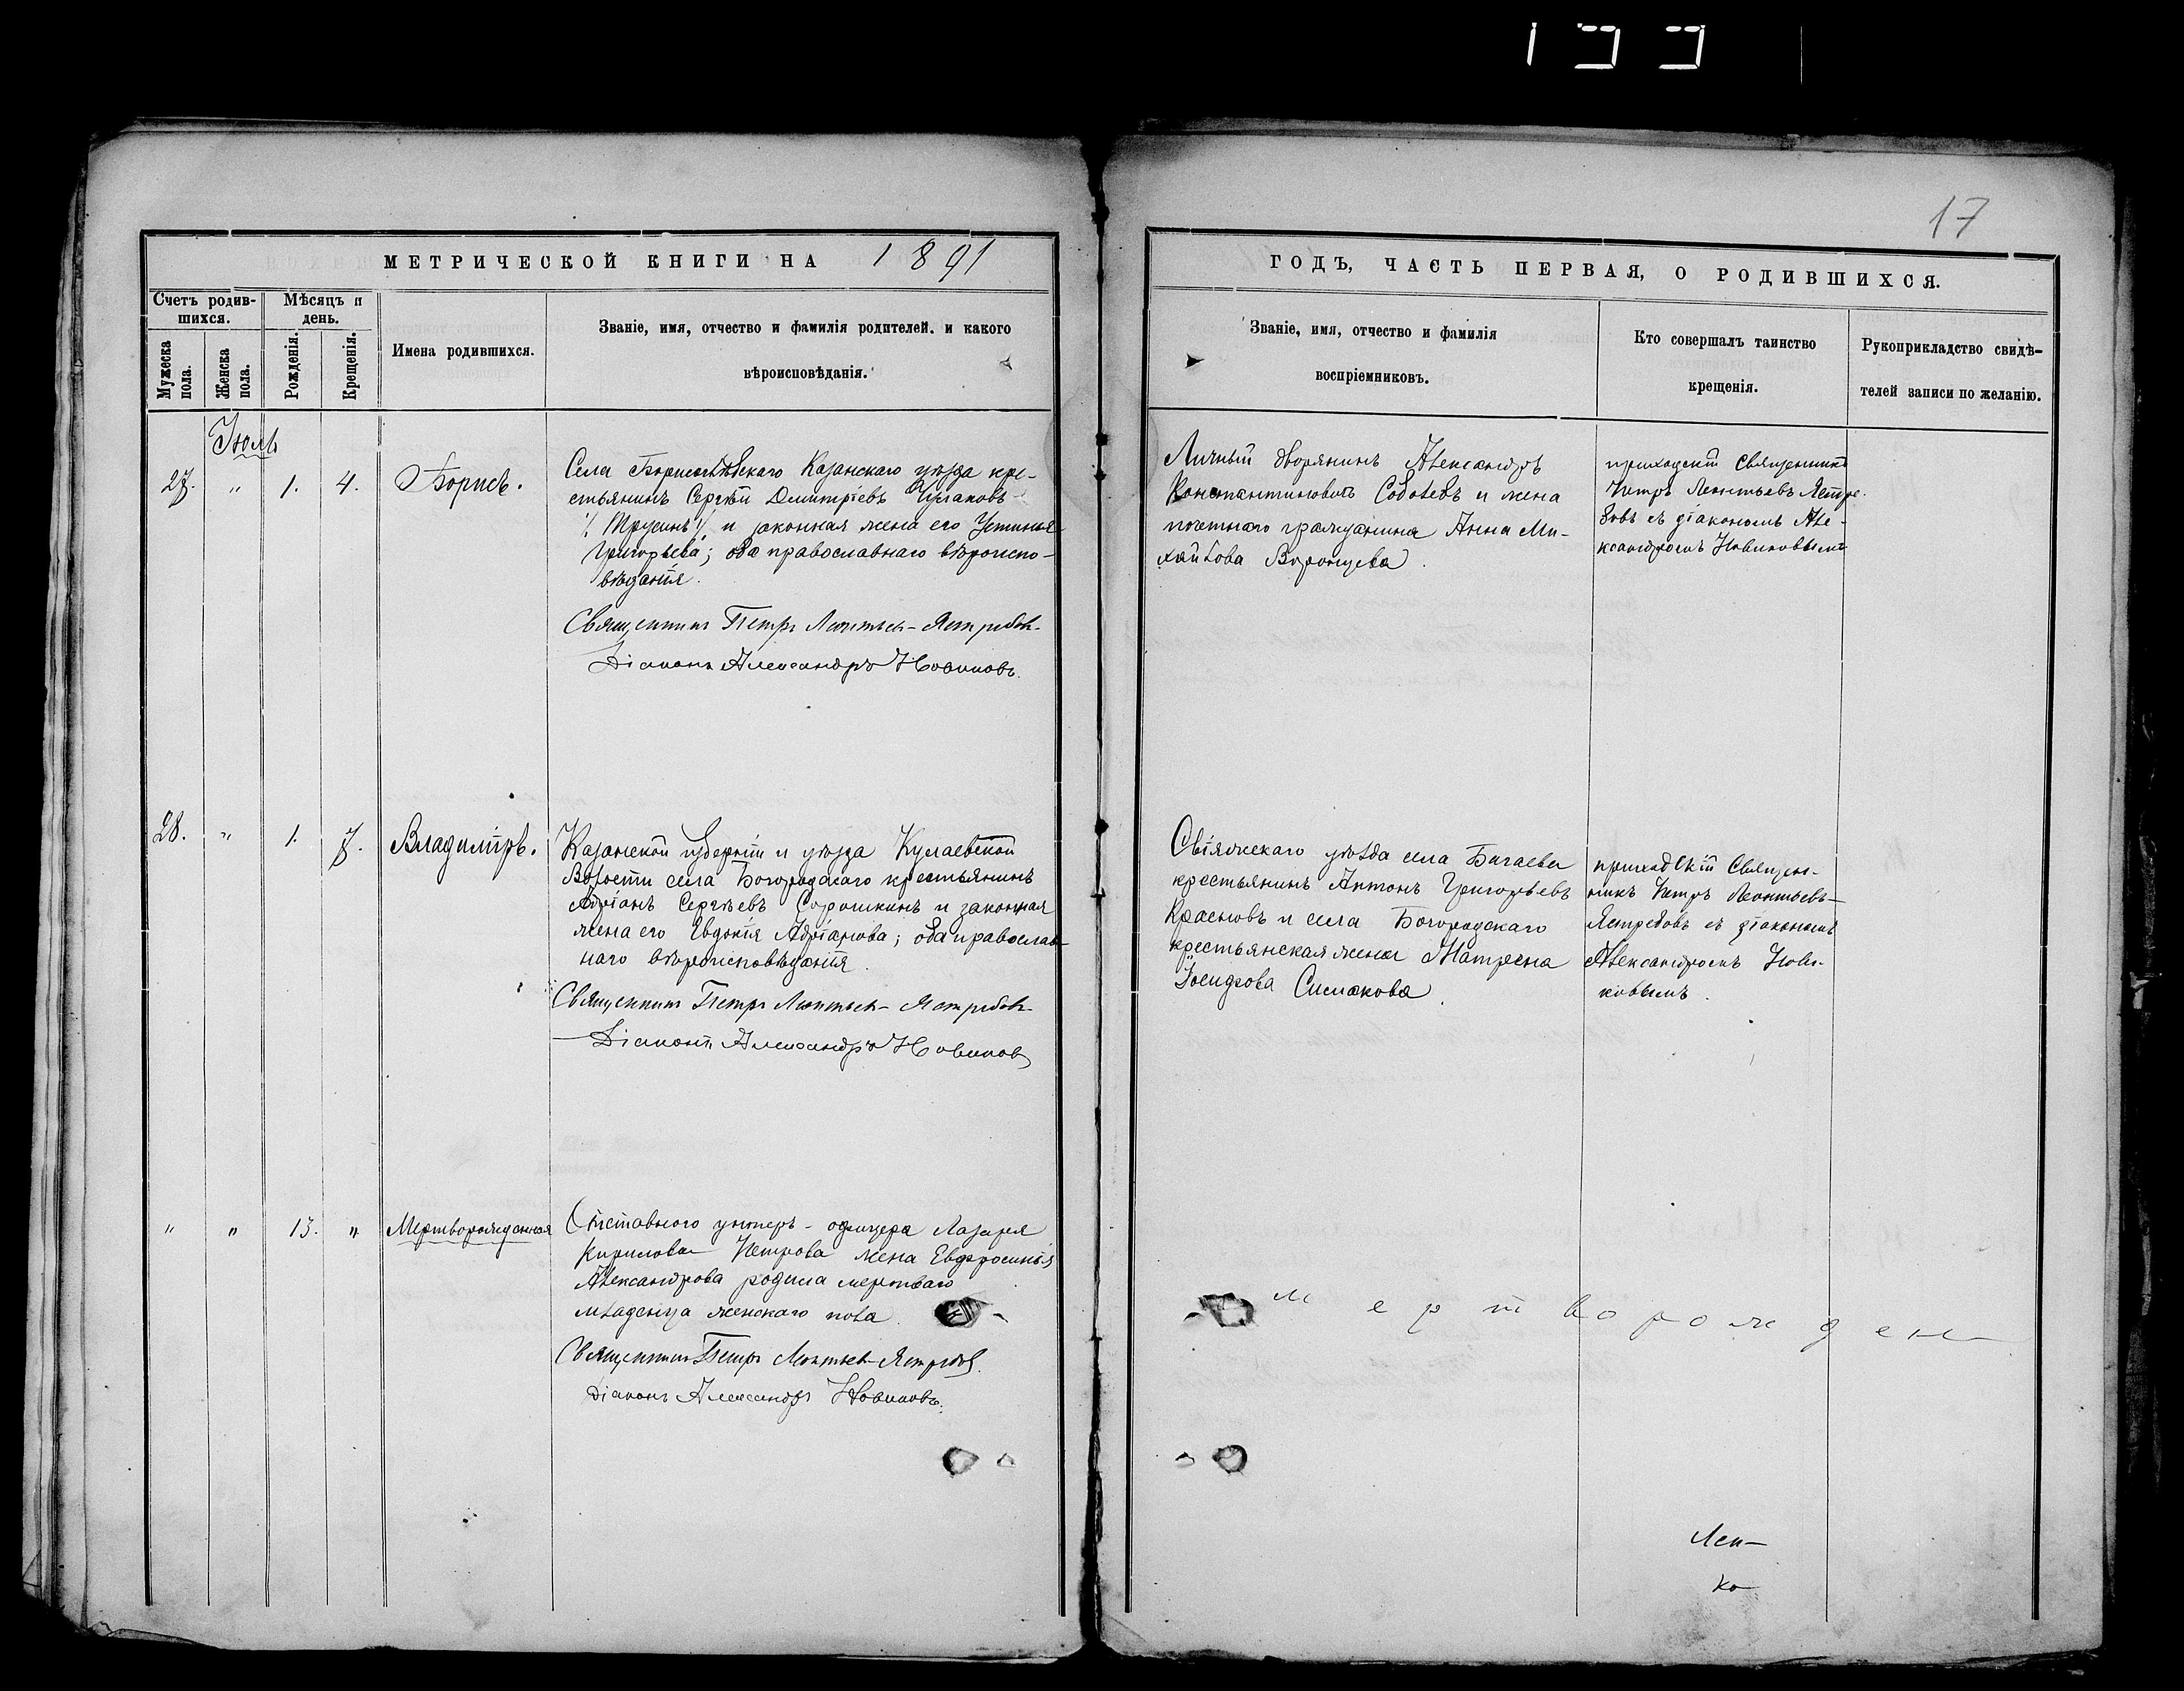 17
МЕТРИЧЕСКОЙ КНИГИ НА 1891
ГОДЪ, ЧАСТЬ ПЕРВАЯ, О РОДИВШИХСЯ.
Счетъ родив-
шихся.
Мужеска
пола.
Женска
пола.
Мѣсяцъ и
день.
Рожденія.
Крещенія.
Имена родившихся.
Званіе, имя, отчество и фамилія родителей. и какого
вѣроисповѣданія.
Званіе, имя, отчество и фамилія
воспріемниковъ.
Кто совершалъ таинство
крещенія.
Рукоприкладство свидѣ-
телей записи по желанію.
Іюль
27. " 1. 4. Борисъ.
Села Борисоглѣбскаго Казанскаго уѣзда кре-
стьянинъ Сергѣй Димитріевъ
и законная жена его Устинья
Григорьева; оба православнаго вѣроиспо-
вѣданія.
Священникъ Петръ Леонтьев-Ястребов
Діаконъ Александръ Новиковъ.
Личный дворянинъ Александръ
Константиновичъ Соболевъ и жена
почетнаго гражданина Анна Ми-
хайлова Воронцева.
приходскій Священникъ
Петръ Леонтьевъ Ястре-
бовъ съ діакономъ Але-
ксандромъ Новиковымъ
28. " 1. 7. Владиміръ.
Казанской губерніи и уѣзда Кулаевской
Волости села Богородскаго крестьянинъ
Адріанъ Сергѣевъ Сорошкинъ и законная
жена его Евдокія Адріанова; оба православ-
наго вѣроисповѣданія.
Священникъ Петръ Леонтьев-Ястребов
Діаконъ Александръ Новиков
Свіяжскаго уѣзда села Бигаева
крестьянинъ Антонъ Григорьевъ
Красновъ и села Богородскаго
крестьянская жена Матрена
Іосифова Симакова.
приходскій Священ-
никъ Петръ Леонтьевъ-
Ястребовъ съ діакономъ
Александромъ Нови-
ковымъ.
" " 13. " Мертворожденная
Отставного унтеръ-офицера Лазаря
Кирилова Петрова жена Евфросинія
Александрова родила мертваго
младенца женскаго пола.
Священникъ Петръ Леонтьев-Ястребов.
Діаконъ Александръ Новиковъ.
мертворожден